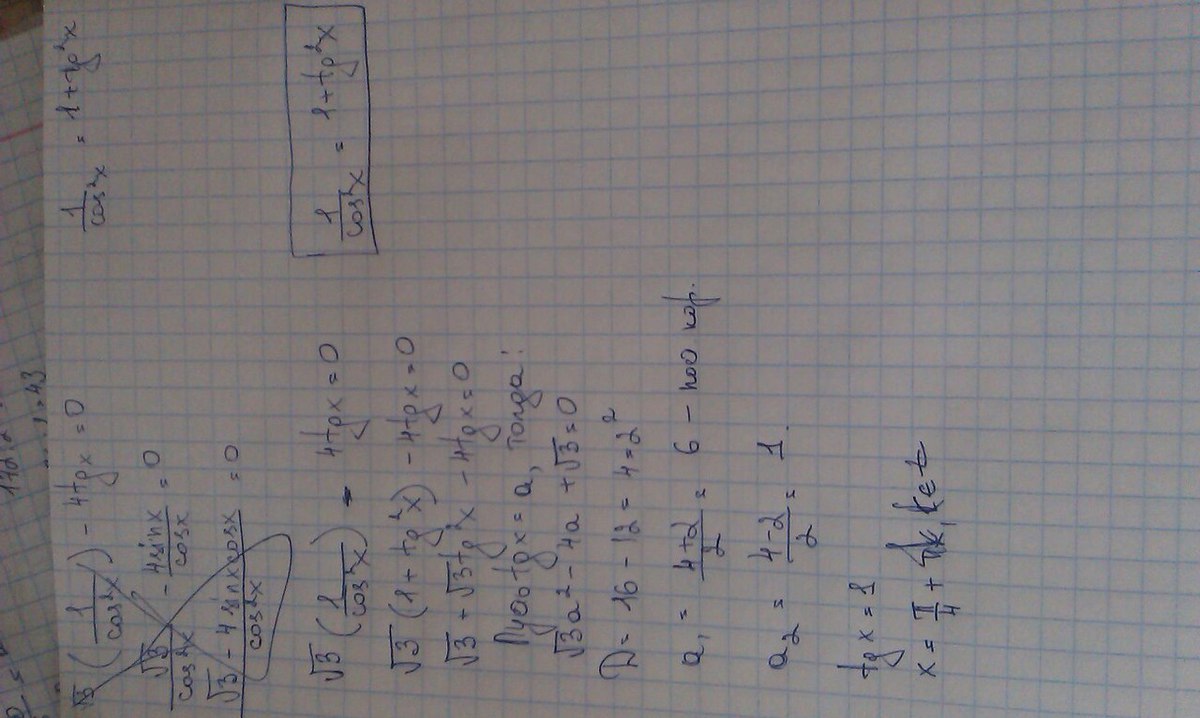 √3 (1/cos²x) - 4tgx = 0
1/cos²x = 1+tg²x
√3/cos²x - 4sinx/cosx = 0
√3 - 4sinxcosx/cos²x = 0
√3 (1/cos²x) - 4tgx = 0
1/cos²x = 1+tg²x
√3 (1+tg²x) - 4tgx = 0
√3 + √3tg²x - 4tgx = 0
Пусть tgx = a, тогда:
√3a² - 4a + √3 = 0
D = 16 - 12 = 4 = 2²
a₁ = 4+2/2 = 6 - пост кор.
a₂ = 4-2/2 = 1.
tg x = 1
x = π/4 + πk, k∈Z